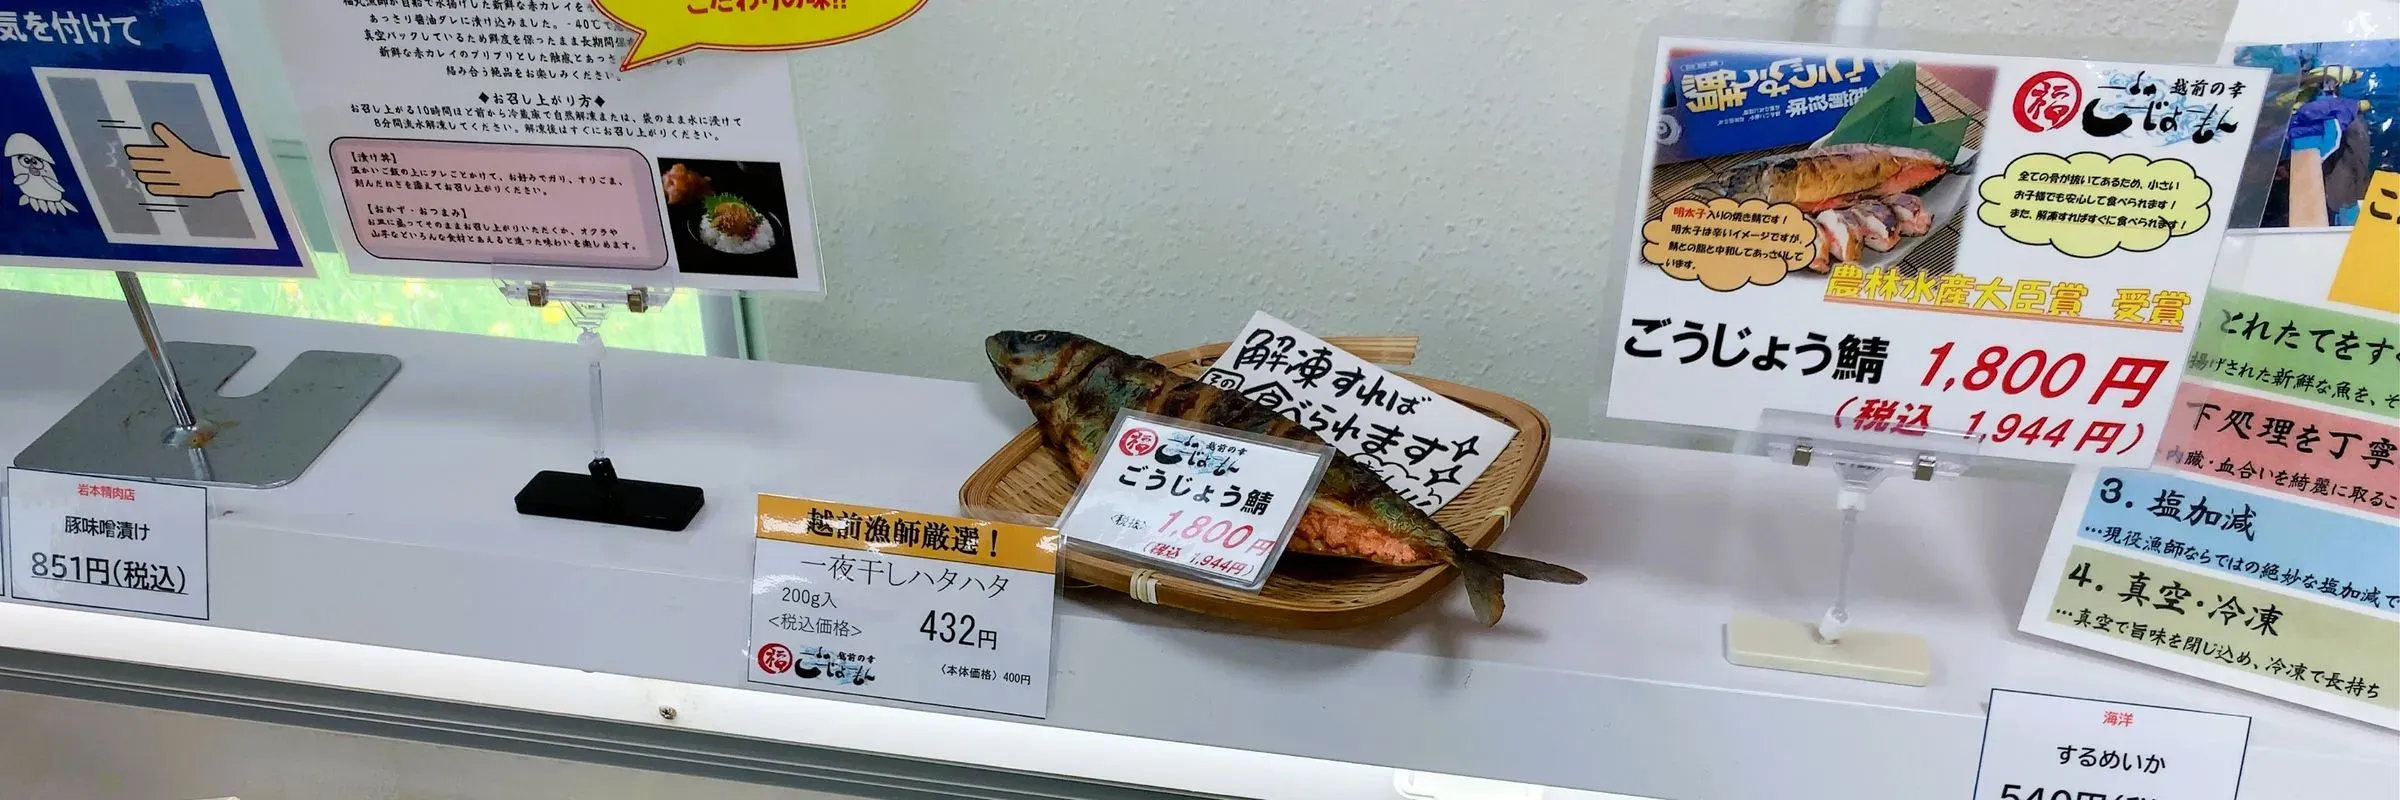 気を付けて
あっさり醤油ダレに漬け込みました。-40℃で
真空パックしているため鮮度を保ったまま長期間保
新鮮な赤カレイのプリプリとした触感とあっさ
絡み合う絶品をお楽しみください。
こだわりの味!!
◆お召し上がり方◆
お召し上がる10時間ほど前から冷蔵庫で自然解凍または、袋のまま水に浸けて
8分間流水解凍してください。解凍後はすぐにお召し上がりください。
【漬け丼】
温かいご飯の上にタレごとかけて、お好みでガリ、すりごま、
刻んだねぎを添えてお召し上がりください。
【おかず・おつまみ】
お皿に盛ってそのままお召し上がりいただくか、オクラや
山芋などいろんな食材とあえると違った味わいを楽しめます。
岩本精肉店
豚味噌漬け
851円(税込)
越前漁師厳選！
一夜干しハタハタ
200g入
<税込価格>
432円
福 越前の幸
こじょもん
〈本体価格〉400円
解凍すれば
その
食べられます☆
福 越前の幸
こじょもん
ごうじょう鯖
<税抜> 1,800円
(税込 1,944円)
福 越前の幸
こじょもん
全ての骨が抜いてあるため、小さい
お子様でも安心して食べられます！
また、解凍すればすぐに食べられます！
明太子入りの焼き鯖です！
明太子は辛いイメージですが、
鯖との脂と中和してあっさりして
います。
農林水産大臣賞 受賞
ごうじょう鯖 1,800円
(税込 1,944円)
とれたてをす
揚げされた新鮮な魚を、そ
下処理を丁寧
内臓・血合いを綺麗に取るこ
3. 塩加減
…現役漁師ならではの絶妙な塩加減で
4. 真空・冷凍
…真空で旨味を閉じ込め、冷凍で長持ち
海洋
するめいか
540円